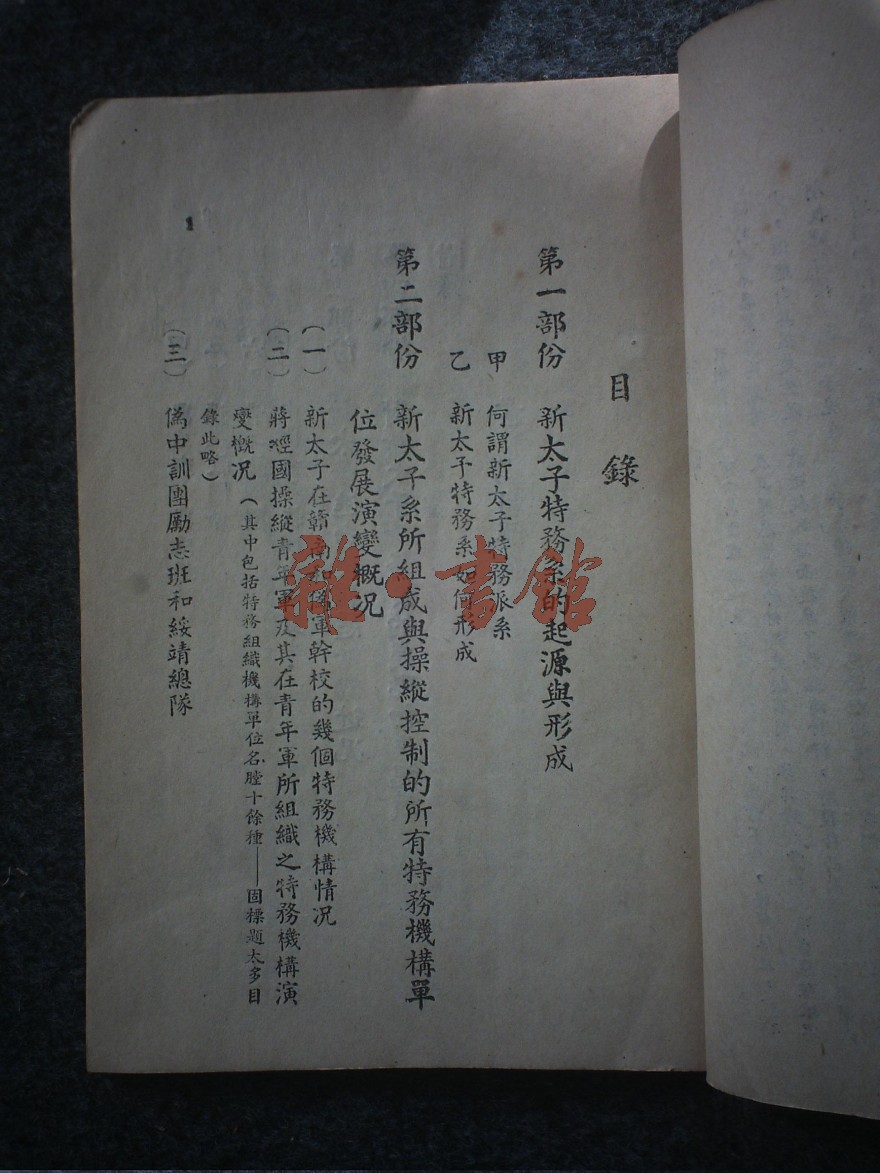 目錄
第一部份 新太子特務系的起源與形成
甲 何謂新太子特務派系
乙 新太子特務系如何形成
第二部份 新太子系所組成與操縱控制的所有特務機構單
位發展演變概况
(一) 新太子在贛南和僞軍幹校的幾個特務機構情况
(二) 蔣經國操縱青年軍及其在青年軍所組織之特務機構演
變概况(其中包括特務組織機構單位名膛十餘種——固標題太多目
錄此略)
(三) 僞中訓團勵志班和綏靖總隊
1
雜·書館